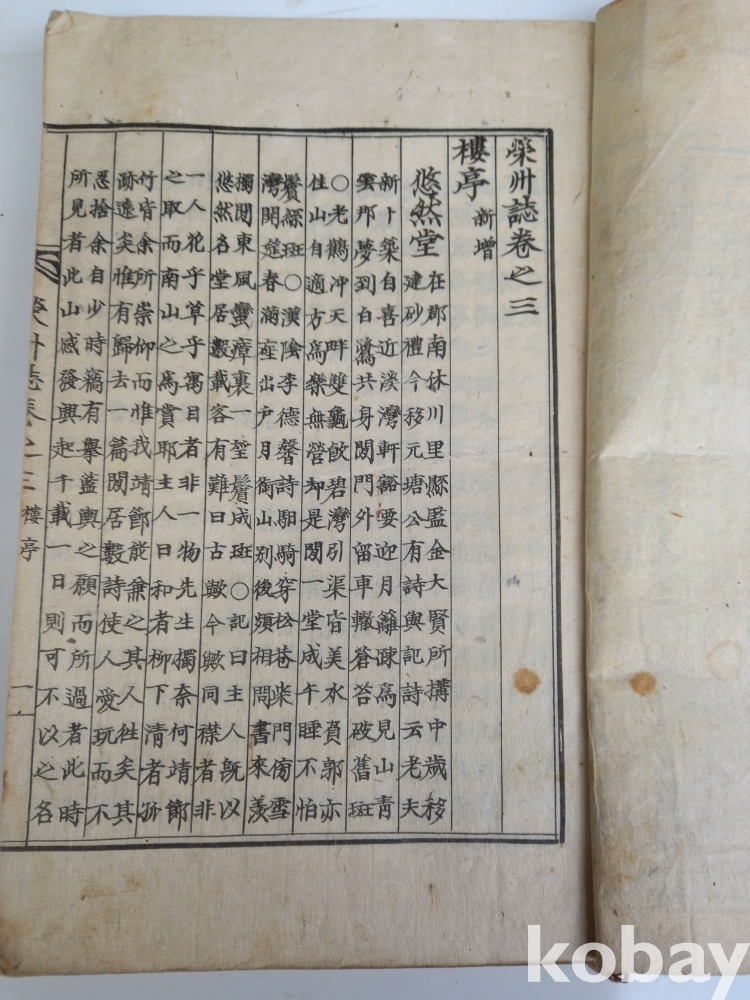 榮州誌卷之三
樓亭 新增
悠然堂 在郡南休川里縣監金大賢所搆中歲移
建砂禮今移元塘公有詩與記詩云老夫
新卜築自喜近淡灣軒豁要迎月籬疎爲見山青
雲那夢到白鷺共身閒門外留車轍蒼苔破舊斑
○老鶴沖天畔雙龜飮碧灣引渠皆美水負郭亦
佳山自適方爲樂無營却是閒一堂成午睡不怕
鬢絲斑○漢陰李德馨詩馹騎穿松巷柴門傍雪
灣開筵春滿座出戶月銜山別後須相問書來羨
獨閒東風蠻瘴裏一望鬢成斑○記曰主人旣以
悠然名堂居數載客有難曰古歟今歟同襟者非
一人花乎草乎寓目者非一物先生獨奈何靖節
之取而南山之爲賞耶主人曰和者柳下清者孤
竹皆余所崇仰而惟我靖節能兼之其人往矣其
跡遠矣惟有歸去一篇閒居數詩使人愛玩而不
忍捨余自少時竊有擧藍輿之願而所過者此時
所見者此山感發興起千載一日則可不以之名
榮州誌卷之三 樓亭 一
kobay